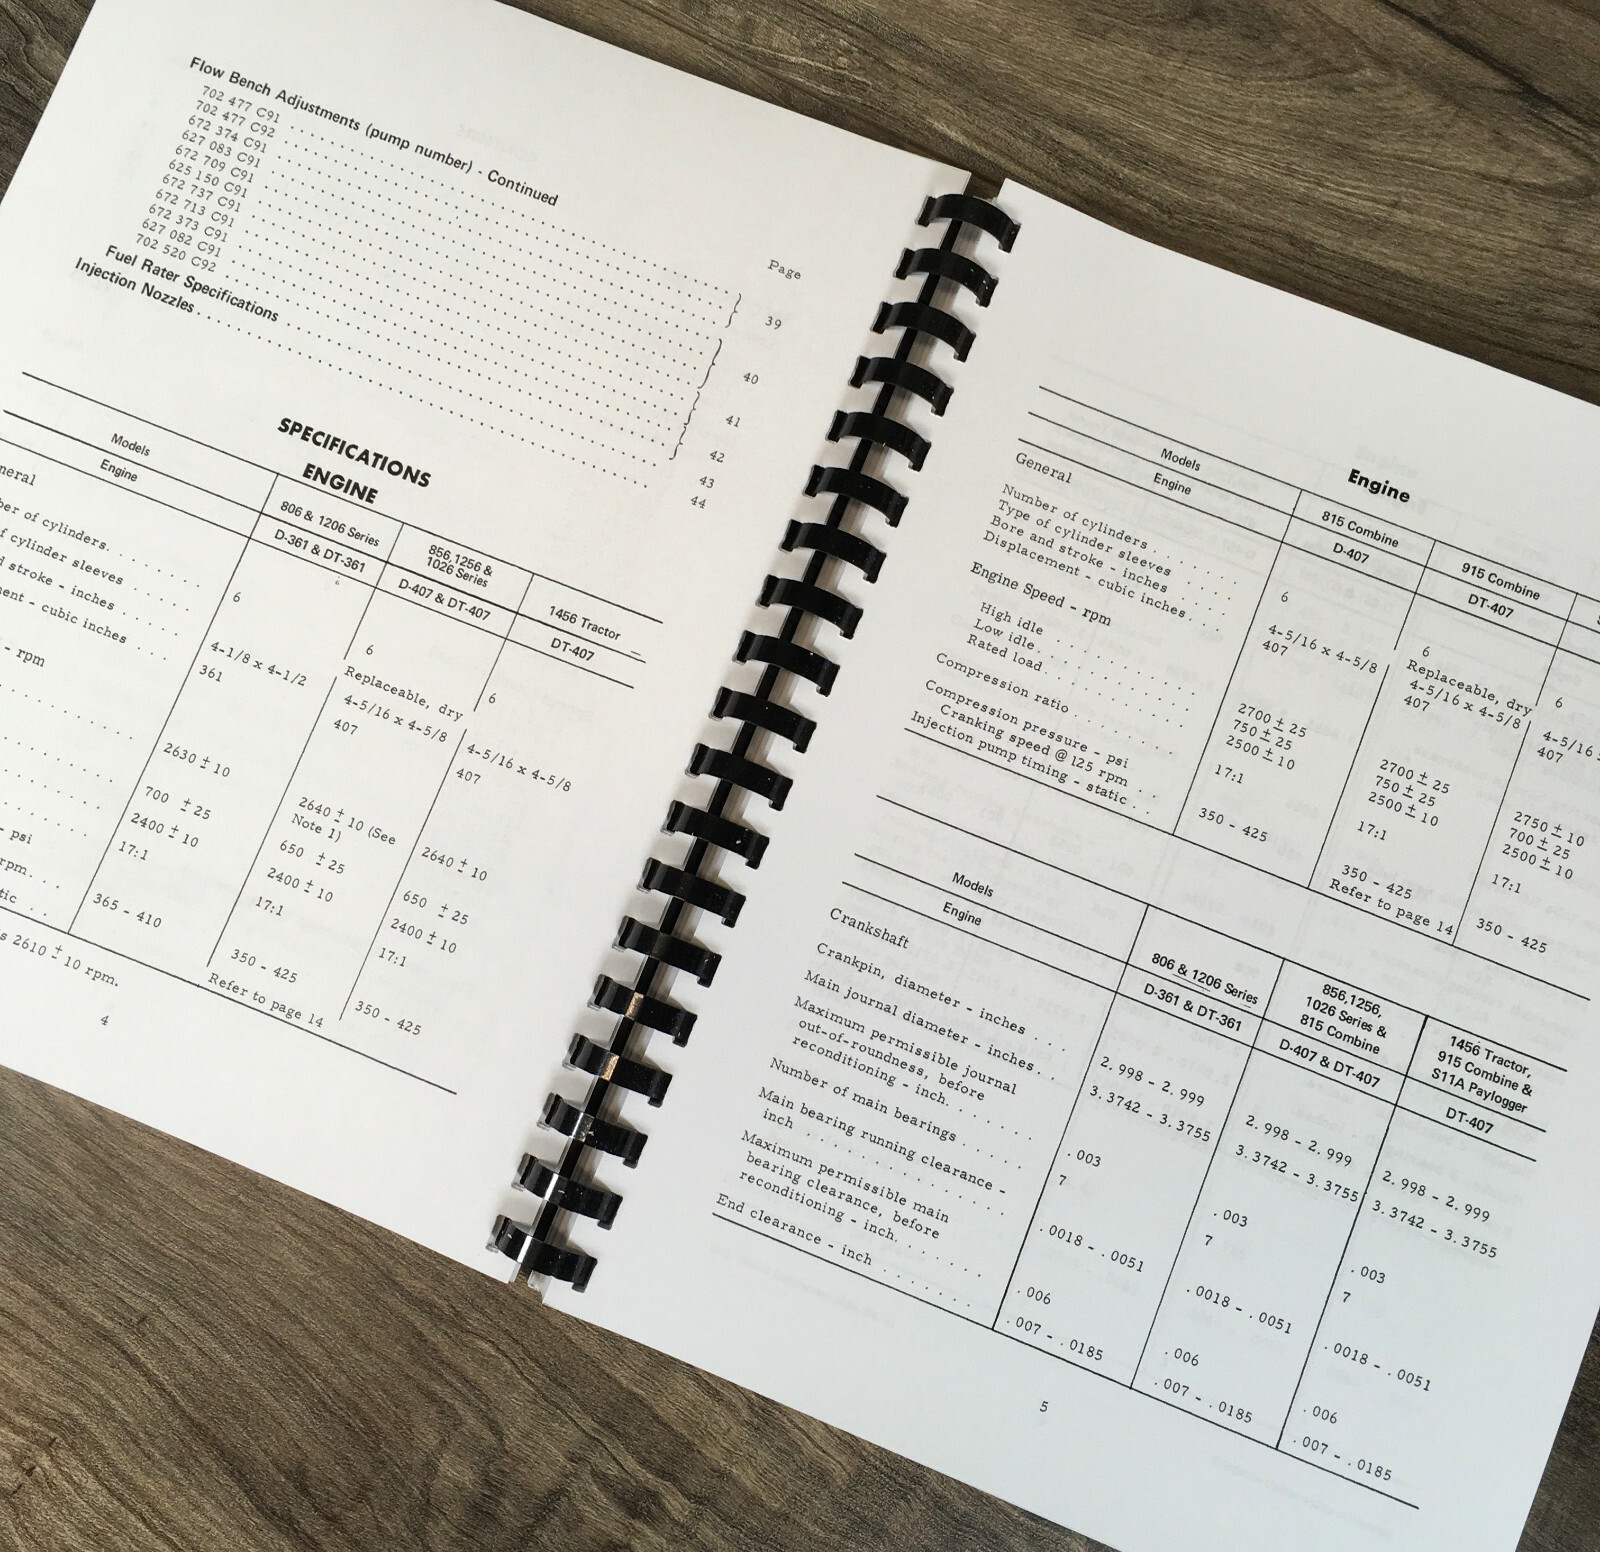 Flow Bench Adjustments (pump number) - Continued
702 477 C91
702 477 C92
672 374 C91
627 083 C91
672 709 C91
625 150 C91
672 737 C91
672 713 C91
672 373 C91
627 082 C91
702 520 C92
Fuel Rater Specifications
Injection Nozzles
Page
39
40
41
42
43
44
SPECIFICATIONS
ENGINE
Models 806 & 1206 Series 856,1256 & 1026 Series 1456 Tractor
Engine D-361 & DT-361 D-407 & DT-407 DT-407
of cylinders. 6 6 6
cylinder sleeves Replaceable, dry
stroke - inches 4-1/8 x 4-1/2 4-5/16 x 4-5/8 4-5/16 x 4-5/8
- cubic inches 361 407 407
- rpm
2630 ± 10 2640 ± 10 (See Note 1) 2640 ± 10
700 ± 25 650 ± 25 650 ± 25
2400 ± 10 2400 ± 10 2400 ± 10
17:1 17:1 17:1
- psi
rpm. 365 - 410 350 - 425 350 - 425
Refer to page 14
2610 ± 10 rpm.
4
Engine
Models 815 Combine 915 Combine
Engine D-407 DT-407
General
Number of cylinders 6 6 6
Type of cylinder sleeves Replaceable, dry
Bore and stroke - inches 4-5/16 x 4-5/8 4-5/16 x 4-5/8 4-5/16
Displacement - cubic inches 407 407 407
Engine Speed - rpm
High idle 2700 ± 25 2700 ± 25 2750 ± 10
Low idle 750 ± 25 750 ± 25 700 ± 25
Rated load 2500 ± 10 2500 ± 10 2500 ± 10
Compression ratio 17:1 17:1 17:1
Compression pressure - psi
Cranking speed @ 125 rpm 350 - 425 350 - 425 350 - 425
Injection pump timing - static Refer to page 14
Models 806 & 1206 Series 856,1256, 1026 Series & 815 Combine 1456 Tractor, 915 Combine & S11A Paylogger
Engine D-361 & DT-361 D-407 & DT-407 DT-407
Crankshaft
Crankpin, diameter - inches 2.998 - 2.999 2.998 - 2.999 2.998 - 2.999
Main journal diameter - inches 3.3742 - 3.3755 3.3742 - 3.3755 3.3742 - 3.3755
Maximum permissible journal
out-of-roundness, before
reconditioning - inch .003 .003 .003
Number of main bearings 7 7 7
Main bearing running clearance -
inch .0018 - .0051 .0018 - .0051 .0018 - .0051
Maximum permissible main
bearing clearance, before
reconditioning - inch .006 .006 .006
End clearance - inch .007 - .0185 .007 - .0185 .007 - .0185
5